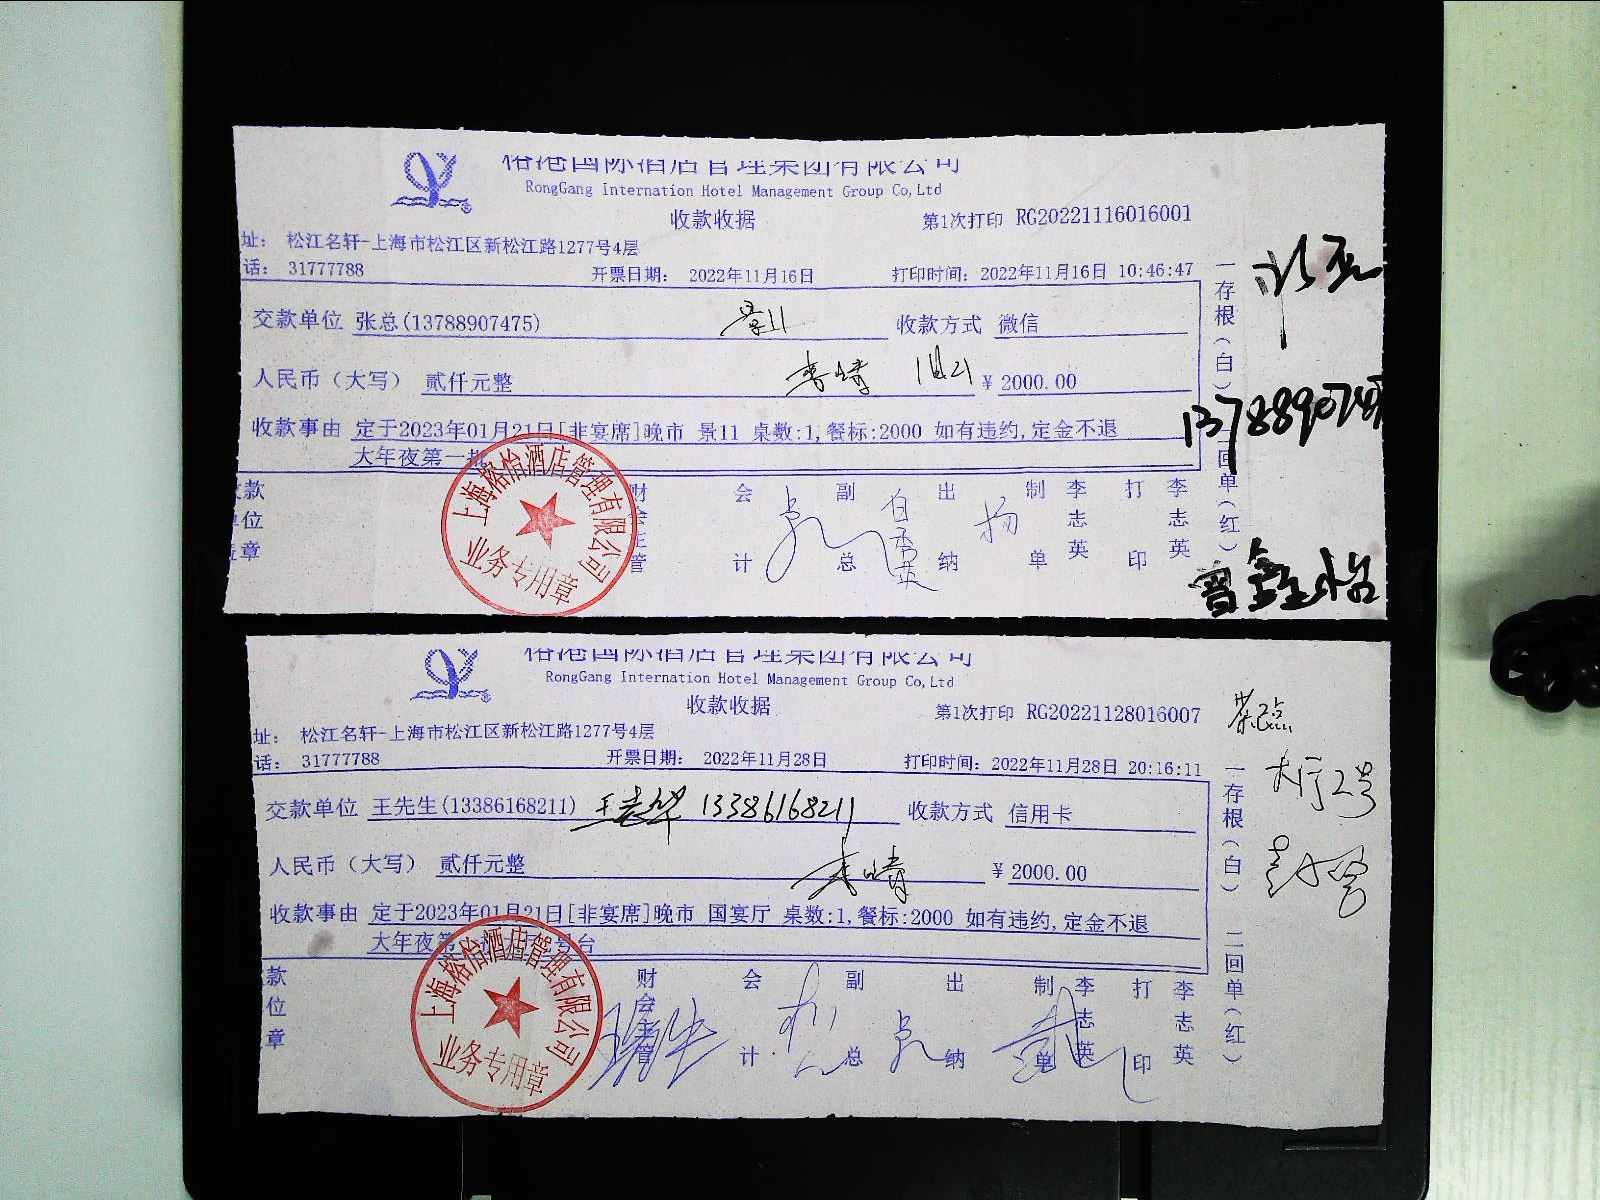 榕港国际酒店管理集团有限公司
RongGang Internation Hotel Management Group Co,Ltd
收款收据
第1次打印 RG20221116016001
址： 松江名轩-上海市松江区新松江路1277号4层
话： 31777788 开票日期： 2022年11月16日 打印时间：2022年11月16日 10:46:47
交款单位 张总(13788907475) 景11 收款方式 微信
人民币（大写） 贰仟元整 李晴 ¥ 2000.00
收款事由 定于2023年01月21日[非宴席]晚市 景11 桌数:1,餐标:2000 如有违约,定金不退
大年夜第一批
收款单位盖章 财会主管 会计 副总 出纳 制单 李志英 打印 李志英
一存根（白） 二回单（红）
上海榕怡酒店管理有限公司
业务专用章
1378890747
曾鑫怡
榕港国际酒店管理集团有限公司
RongGang Internation Hotel Management Group Co,Ltd
收款收据
第1次打印 RG20221128016007
址： 松江名轩-上海市松江区新松江路1277号4层
话： 31777788 开票日期： 2022年11月28日 打印时间：2022年11月28日 20:16:11
交款单位 王先生(13386168211) 13386168211 收款方式 信用卡
人民币（大写） 贰仟元整 李晴 ¥ 2000.00
收款事由 定于2023年01月21日[非宴席]晚市 国宴厅 桌数:1,餐标:2000 如有违约,定金不退
大年夜第 号台
款位章 财会主管 会计 副总 出纳 制单 李志英 打印 李志英
一存根（白） 二回单（红）
上海榕怡酒店管理有限公司
业务专用章
大厅2号